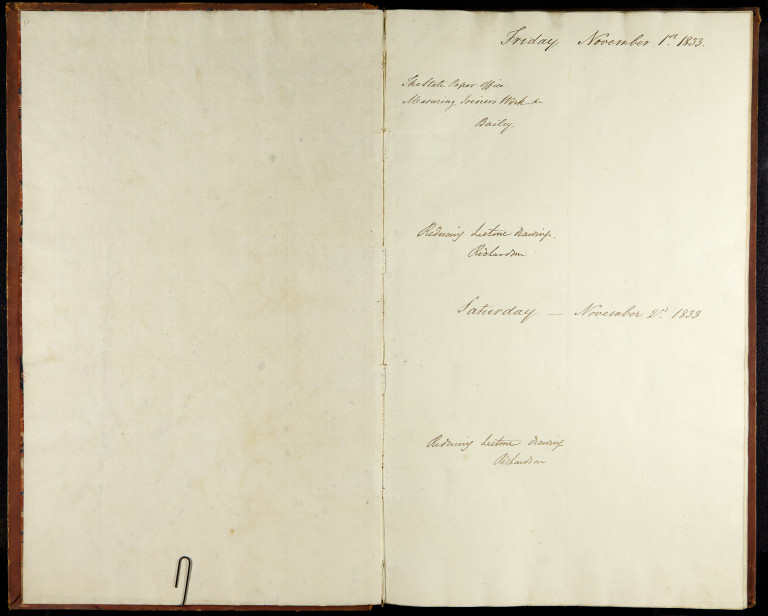 Friday November 1st. 1833.
The State Paper Office
Measuring Joiners Work &c
Bailey
Reducing Lecture drawings.
Richardson
Saturday — November 2d. 1833
Reducing Lecture drawing
Richardson